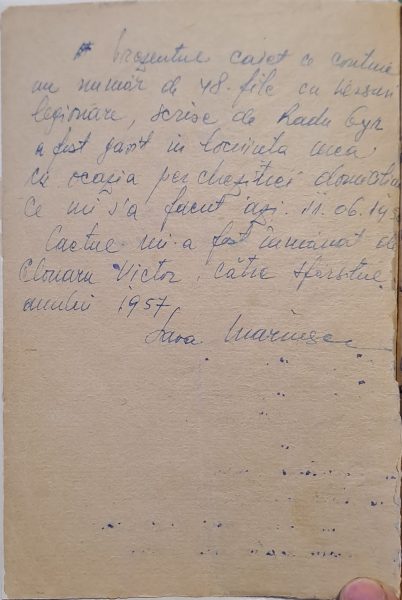 Prezentul caiet ce conține
un număr de 48 file cu versuri
legionare, scrise de Radu Gyr
a fost găsit în locuința mea
cu ocazia percheziției domiciliare
ce mi s'a făcut azi. 11.06.195
Caetul mi-a fost înmânat de
Clonaru Victor, către sfârșitul
anului 1957.
Marinescu